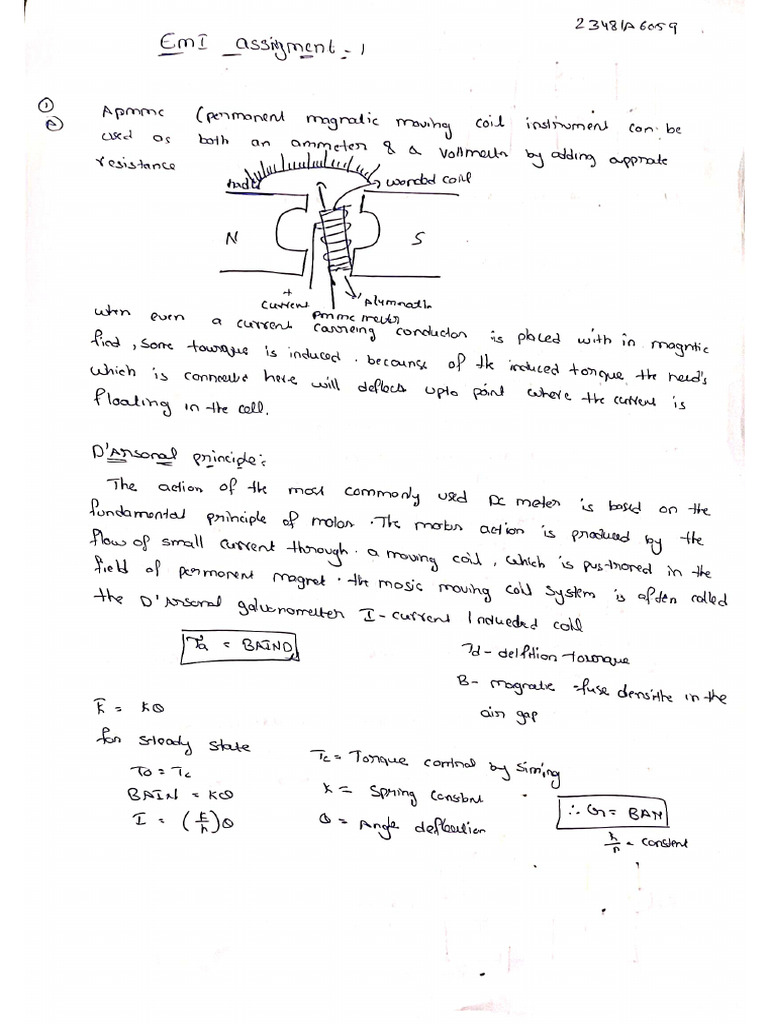 23481A6059
EmI assigment - 1
①
a
Apmmc (permanent magnatic moving coil instrument can be
used as both an ammeter & a voltmeter by adding approate
resistance
wonded coil
N
S
+
current
pmmc meter
when even a current carreing conductor is placed with in magntic
fied, some towrque is induced. becaunse of the induced torque the need's
which is connecte here will deflects upto point where the current is
floating in the cell.
D'Arsonal principle:
The action of the most commonly used DC meter is based on the
fundamental principle of motor. The motor action is produced by the
flow of small current through a moving coil, which is in the
field of permanent magnet. the moving coil system is often called
the D'Arsonal galvonometer I - current Indueded coil
Td = BAIND
Td - delftion towrque
B - magnatic -fuse densithe in the
air gap
= Kθ
for steady state
Tc = Torque control by
TD = Tc
K = spring constant
BAIN = Kθ
I = ( )θ
θ = Angle deflection
∴ G = BAN
- constent